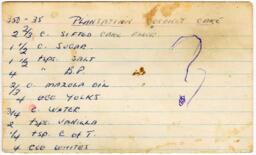 350 - 35 PLANTATION COCONUT CAKE
2 2/3 C. SIFTED CAKE FLOUR
1 1/2 C. SUGAR
1 1/2 tsps. SALT
4 " B.P
2/3 C. MAZOLA OIL
4 EGG YOLKS
3/4 C. WATER
2 tsps. VANILLA
1/4 tsp. C of T.
4 EGG WHITES